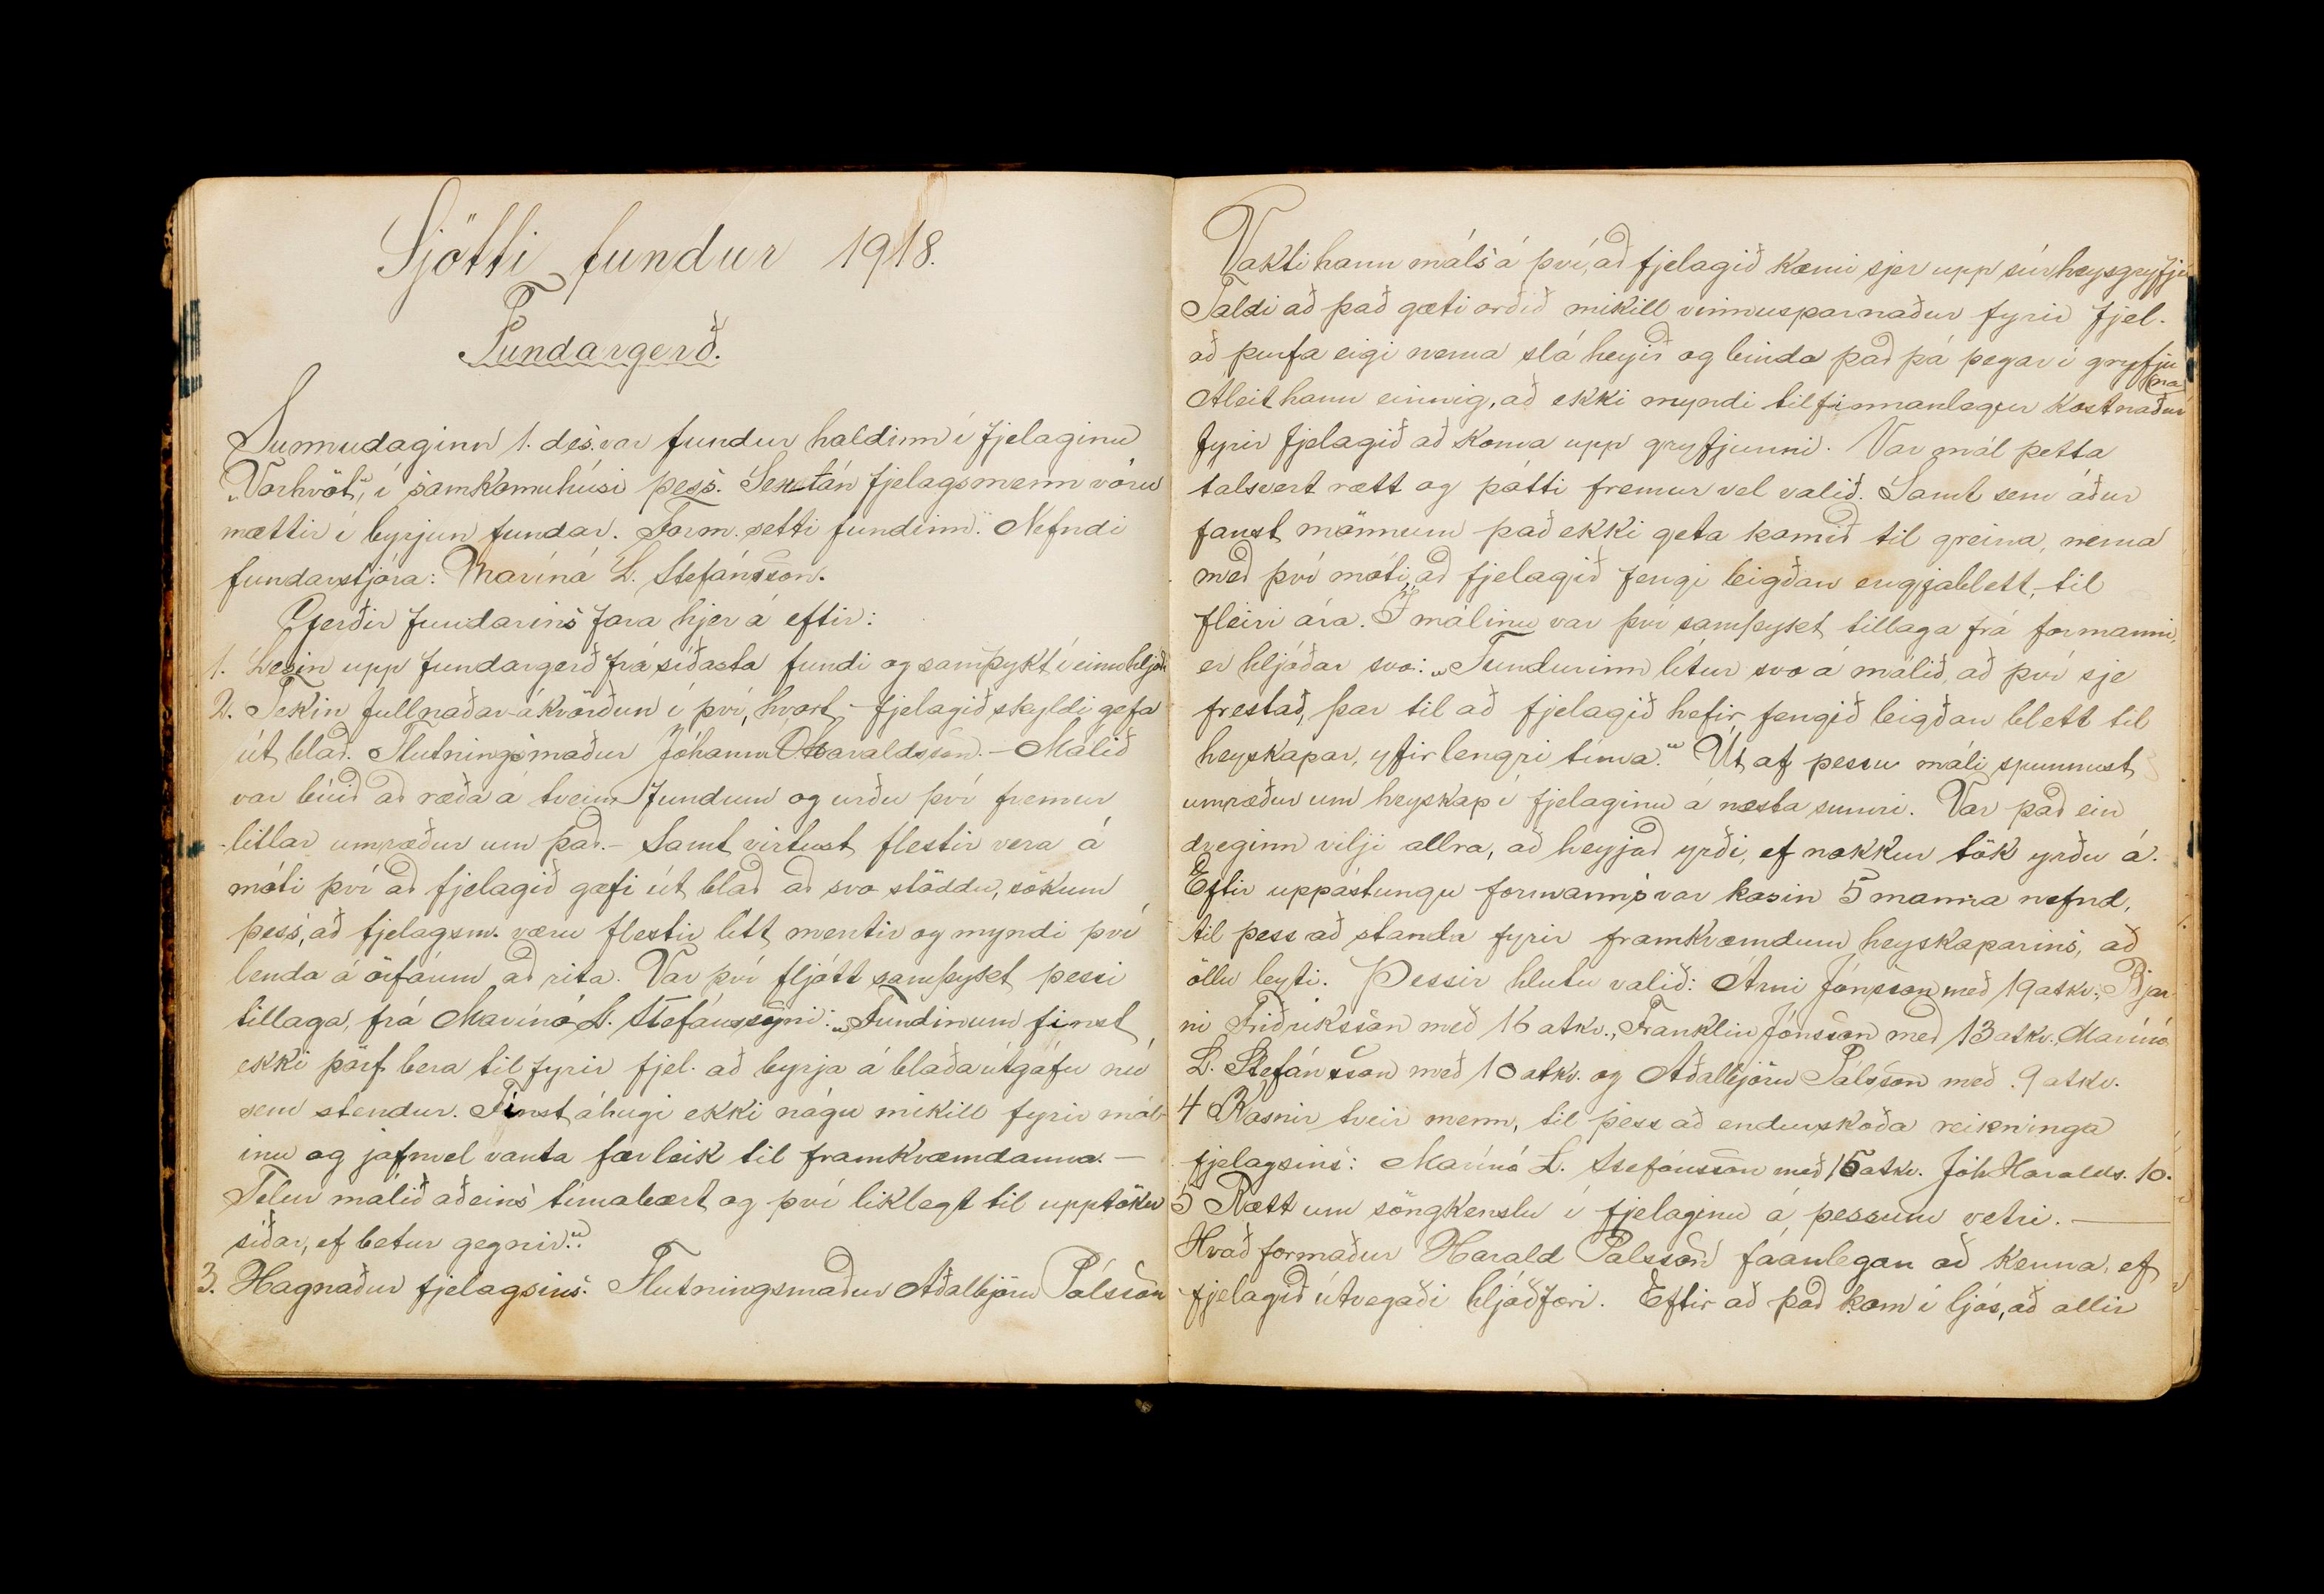 Sjötti fundur 1918.
Fundargerð.
Sunnudaginn 1. des. var fundur haldinn í fjelaginu
„Vorhvöt“, í samkomuhúsi þess. Sextán fjelagsmenn vóru
mættir í byrjun fundar. Form. setti fundinn. Nefndi
fundarstjóra: Marínó L. Stefánsson.
Gjerðir fundarins fara hjer á eftir:
1. Lesin upp fundargerð frá síðasta fundi og samþykt í einu hljóði
2. Tekin fullnaðar-ákvörðun í því, hvort fjelagið skyldi gefa
út blað. Flutningsmaður Jóhann Ó. Haraldsson. - Málið
var búið að ræða á tveim fundum og urðu því fremur
litlar umræður um það. - Samt virtust flestir vera á
móti því að fjelagið gæfi út blað að svo stöddu, sökum
þess, að fjelagsm. væru flestir lítt mentir og myndi því
lenda á örfáum að rita. Var því fljótt samþykt þessi
tillaga, frá Marínó L. Stefánssyni: „Fundinum finst
ekki þörf bera til fyrir fjel. að byrja á blaðaútgáfu nú
sem stendur. Finst áhugi ekki nógu mikill fyrir mál-
inu og jafnvel vanta færleik til framkvæmdanna. -
Telur málið aðeins tímabært og því líklegt til upptöku
síðar, ef betur gegnir.“
3. Hagnaður fjelagsins. Flutningsmaður Aðalbjörn Pálsson
Vakti hann máls á því, að fjelagið kæmi sjer upp súrheysgryfju
Taldi að það gæti orðið mikill vinnusparnaður fyrir fjel.
að þurfa eigi nema slá heyið og binda það þá þegar í gryfju
na
Áleit hann einnig, að ekki myndi tilfinnanlegur kostnaður
fyrir fjelagið að koma upp gryfjunni. Var mál þetta
talsvert rætt og þótti fremur vel valið. Samt sem áður
fanst mönnum það ekki geta komið til greina, nema
með því móti, að fjelagið fengi leigðan engjablett, til
fleiri ára. Í málinu var því samþykt tillaga frá formanni,
er hljóðar svo: „Fundurinn lítur svo á málið, að því sje
frestað, þar til að fjelagið hefir fengið leigðan blett til
heyskapar, yfir lengri tíma.“ Út af þessu máli spunnust
umræður um heyskap í fjelaginu á næsta sumri. Var það ein
dreginn vilji allra, að heyjað yrði, ef nokkur tök yrðu á.
Eftir uppástungu formanns var kosin 5 manna nefnd,
til þess að standa fyrir framkvæmdum heyskaparins, að
öllu leyti. Þessir hlutu valið: Árni Jónsson með 19 atkv., Bjar
ni Friðriksson með 16 atkv., Franklin Jónsson með 13 atkv. Marínó
L. Stefánsson með 10 atkv. og Aðalbjörn Pálsson með 9 atkv.
4 Kosnir tveir menn, til þess að endurskoða reikninga
fjelagsins: Marínó L. Stefánsson með 15 atkv. Jóh. Haralds. 10.
5 Rætt um söngkenslu í fjelaginu á þessum vetri.
Hvað formaður Harald Pálsson fáanlegan að kenna, ef
fjelagið útvegaði hljóðfæri. Eftir að það kom í ljós, að allir